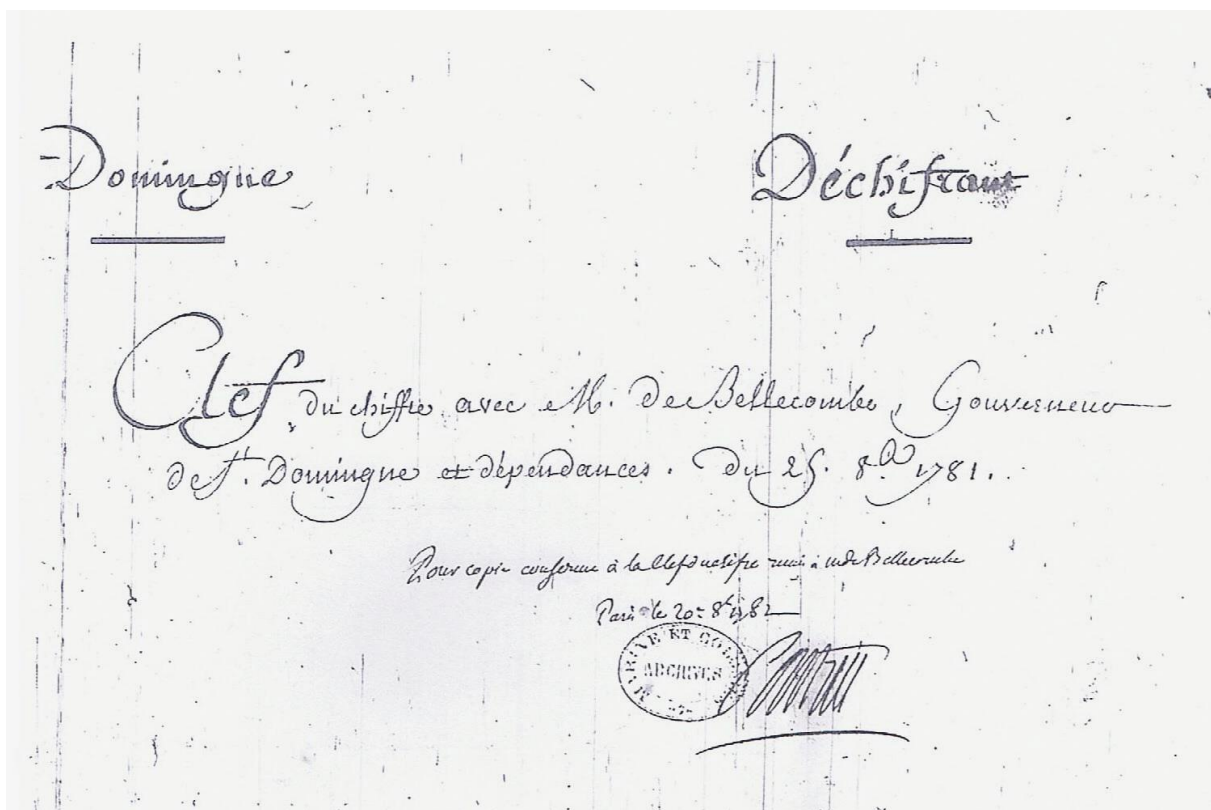 Domingue
Déchifrant
Clef du chiffre avec M. de Bellecombe, Gouverneur
de St. Domingue et dépendances. Du 25. 8bre 1781.
Pour copie conforme à la Clef du chifre remis à m de Bellecombe
Paris le 20 8bre
MARINE ET COLONIES
ARCHIVES